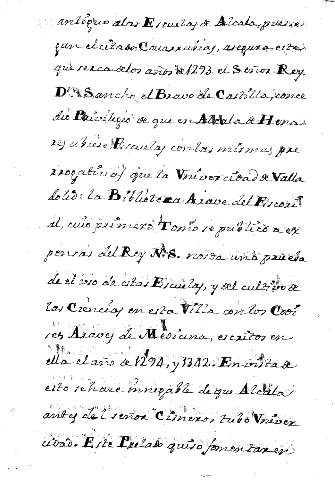 antiguo a las Escuelas de Alcala, pues se-
gun el citado Covarrubias, asegura este
que serca de los años de 1293 el Señor Rey
Dn. Sancho el Bravo de Castilla, conce
dio Privilegio de que en Alcala de Hena
res ubiese Escuelas con las mismas pre
rrogativas que la Vniversidad de Valla
dolid: la Biblioteca Arave del Escori
al, cuio primero Tomo se publico a ex
pensas del Rey N. S. nos da una prueba
de el vso de estas Escuelas, y del cultivo de
las Ciencias en esta Villa con los Codi
ses Araves de Medicina, escritos en
ella el año de 1294, y 1342. En vista de
esto se hace innegable de que Alcala
antes del señor Cisneros tubo Vniver
cidad. Este Prelado quiso fomentar en